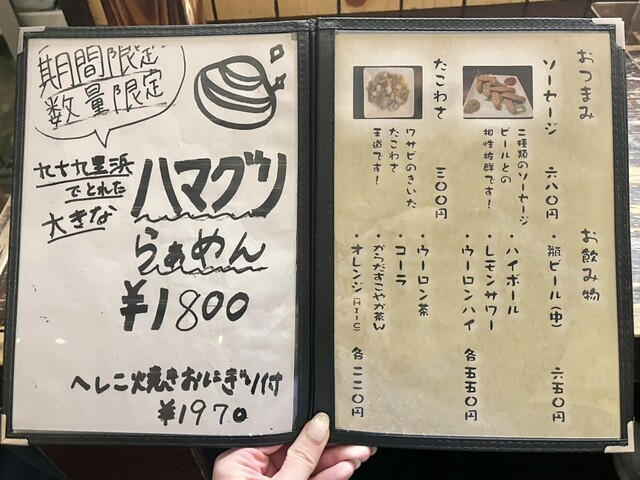 期間限定
数量限定
九十九里浜
でとれた
大きな
ハマグリ
らぁめん
¥1800
へしこ焼きおにぎり付
¥1970
おつまみ
ソーセージ 六八〇円
二種類のソーセージ
ビールとの
相性抜群です!
たこわさ 三〇〇円
ワサビのきいた
たこわさ
王道です!
お飲み物
・瓶ビール(中) 六五〇円
・ハイボール
・レモンサワー
・ウーロンハイ 各五五〇円
・ウーロン茶
・コーラ
・からだすこやか茶W
・オレンジ 各二二〇円